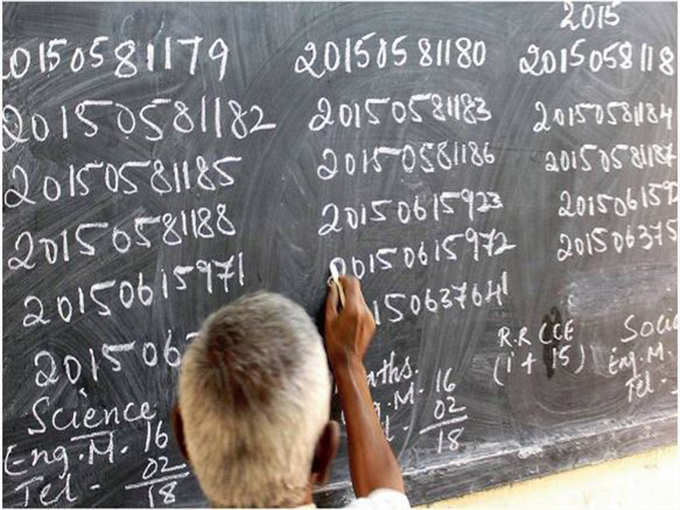 2015
20150581179 20150581180 2015058118
20150581182 20150581183 20150581184
20150581185 20150581186 20150581187
20150581188 20150615923 201506159
20150615971 20150615972 201506375
201506 150637641
Science
Eng.M. - 16
Tel - 02
18
aths.
g.M. - 16
02
18
R.R CCE
(1 + 15)
Soci
Eng.M.
Tel -